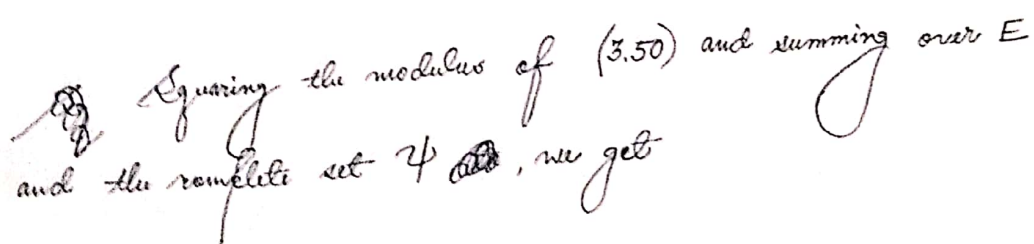 Squaring the modulus of (3.50) and summing over E
and the complete set ψ , we get